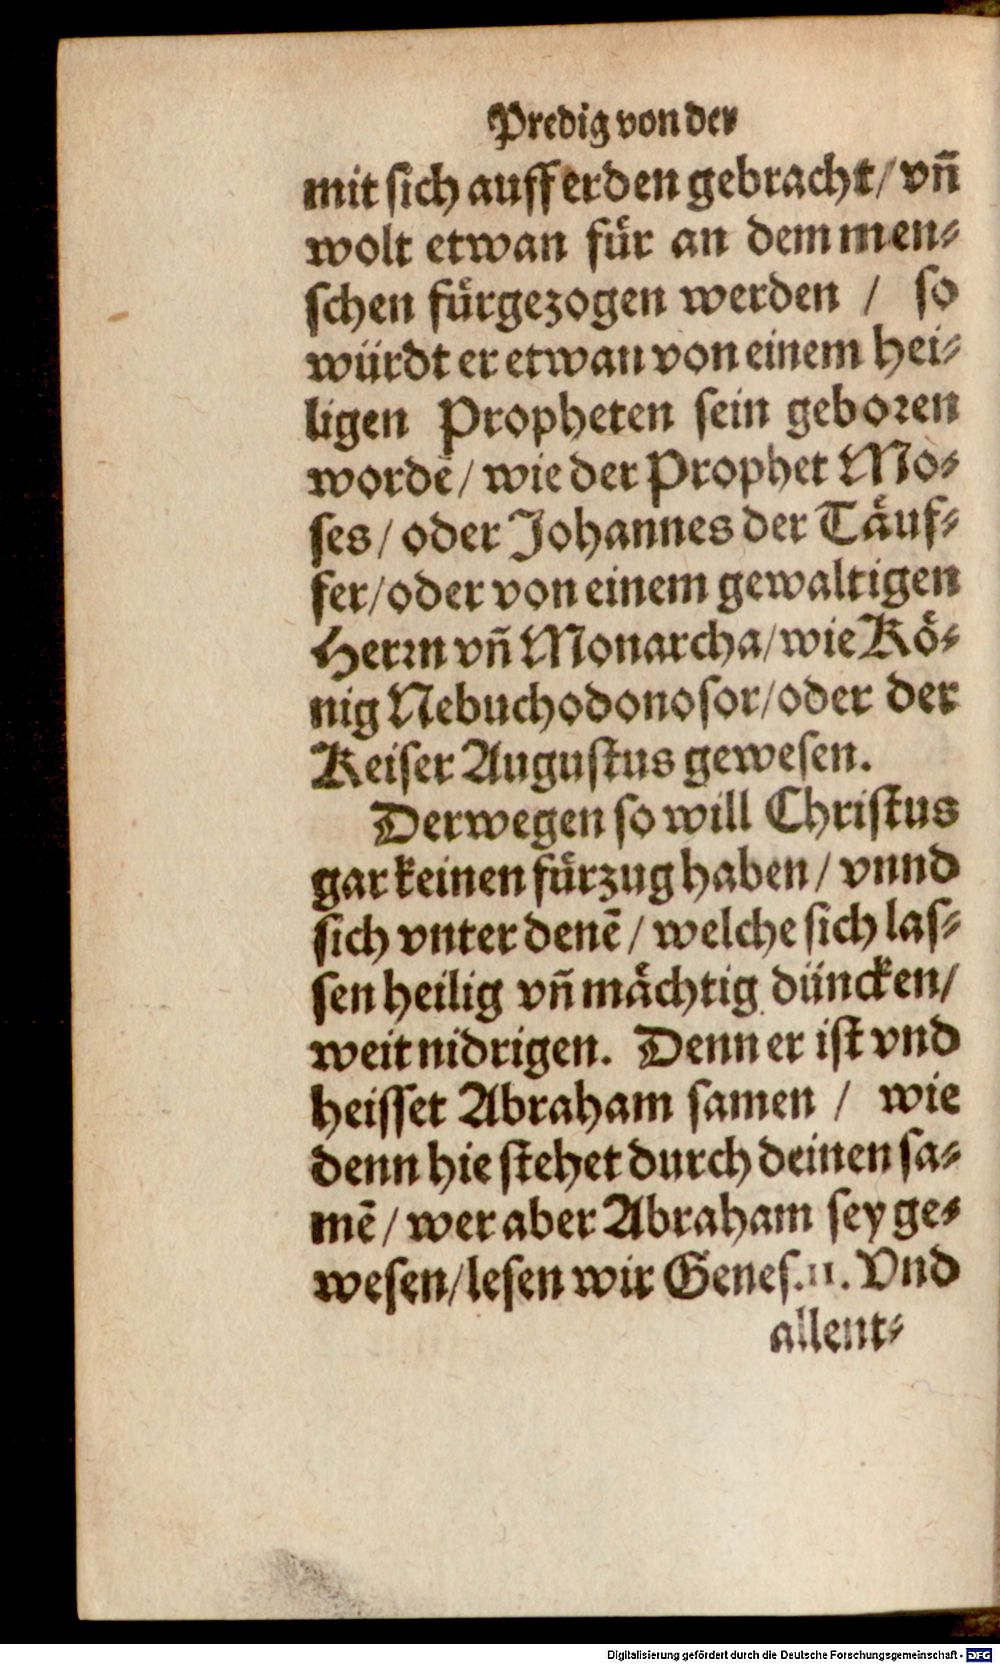 Predig von der
mit sich auff erden gebracht/ vn̄
wolt etwan fuͤr an dem men⸗
schen fuͤrgezogen werden / so
wuͤrdt er etwan von einem hei⸗
ligen Propheten sein geboren
wordē/ wie der Prophet Mo⸗
ses/ oder Johannes der Taͤuf⸗
fer/oder von einem gewaltigen
Herrn vn̄ Monarcha/wie Koͤ⸗
nig Nebuchodonosor/oder der
Keiser Augustus gewesen.
Derwegen so will Christus
gar keinen fuͤrzug haben/ vnnd
sich vnter denē/ welche sich las⸗
sen heilig vn̄ maͤchtig duͤncken/
weit nidrigen. Denn er ist vnd
heisset Abraham samen / wie
denn hie stehet durch deinen sa⸗
mē/ wer aber Abraham sey ge⸗
wesen/lesen wir Genes.11. Vnd
allent⸗
Digitalisierung gefördert durch die Deutsche Forschungsgemeinschaft - DFG